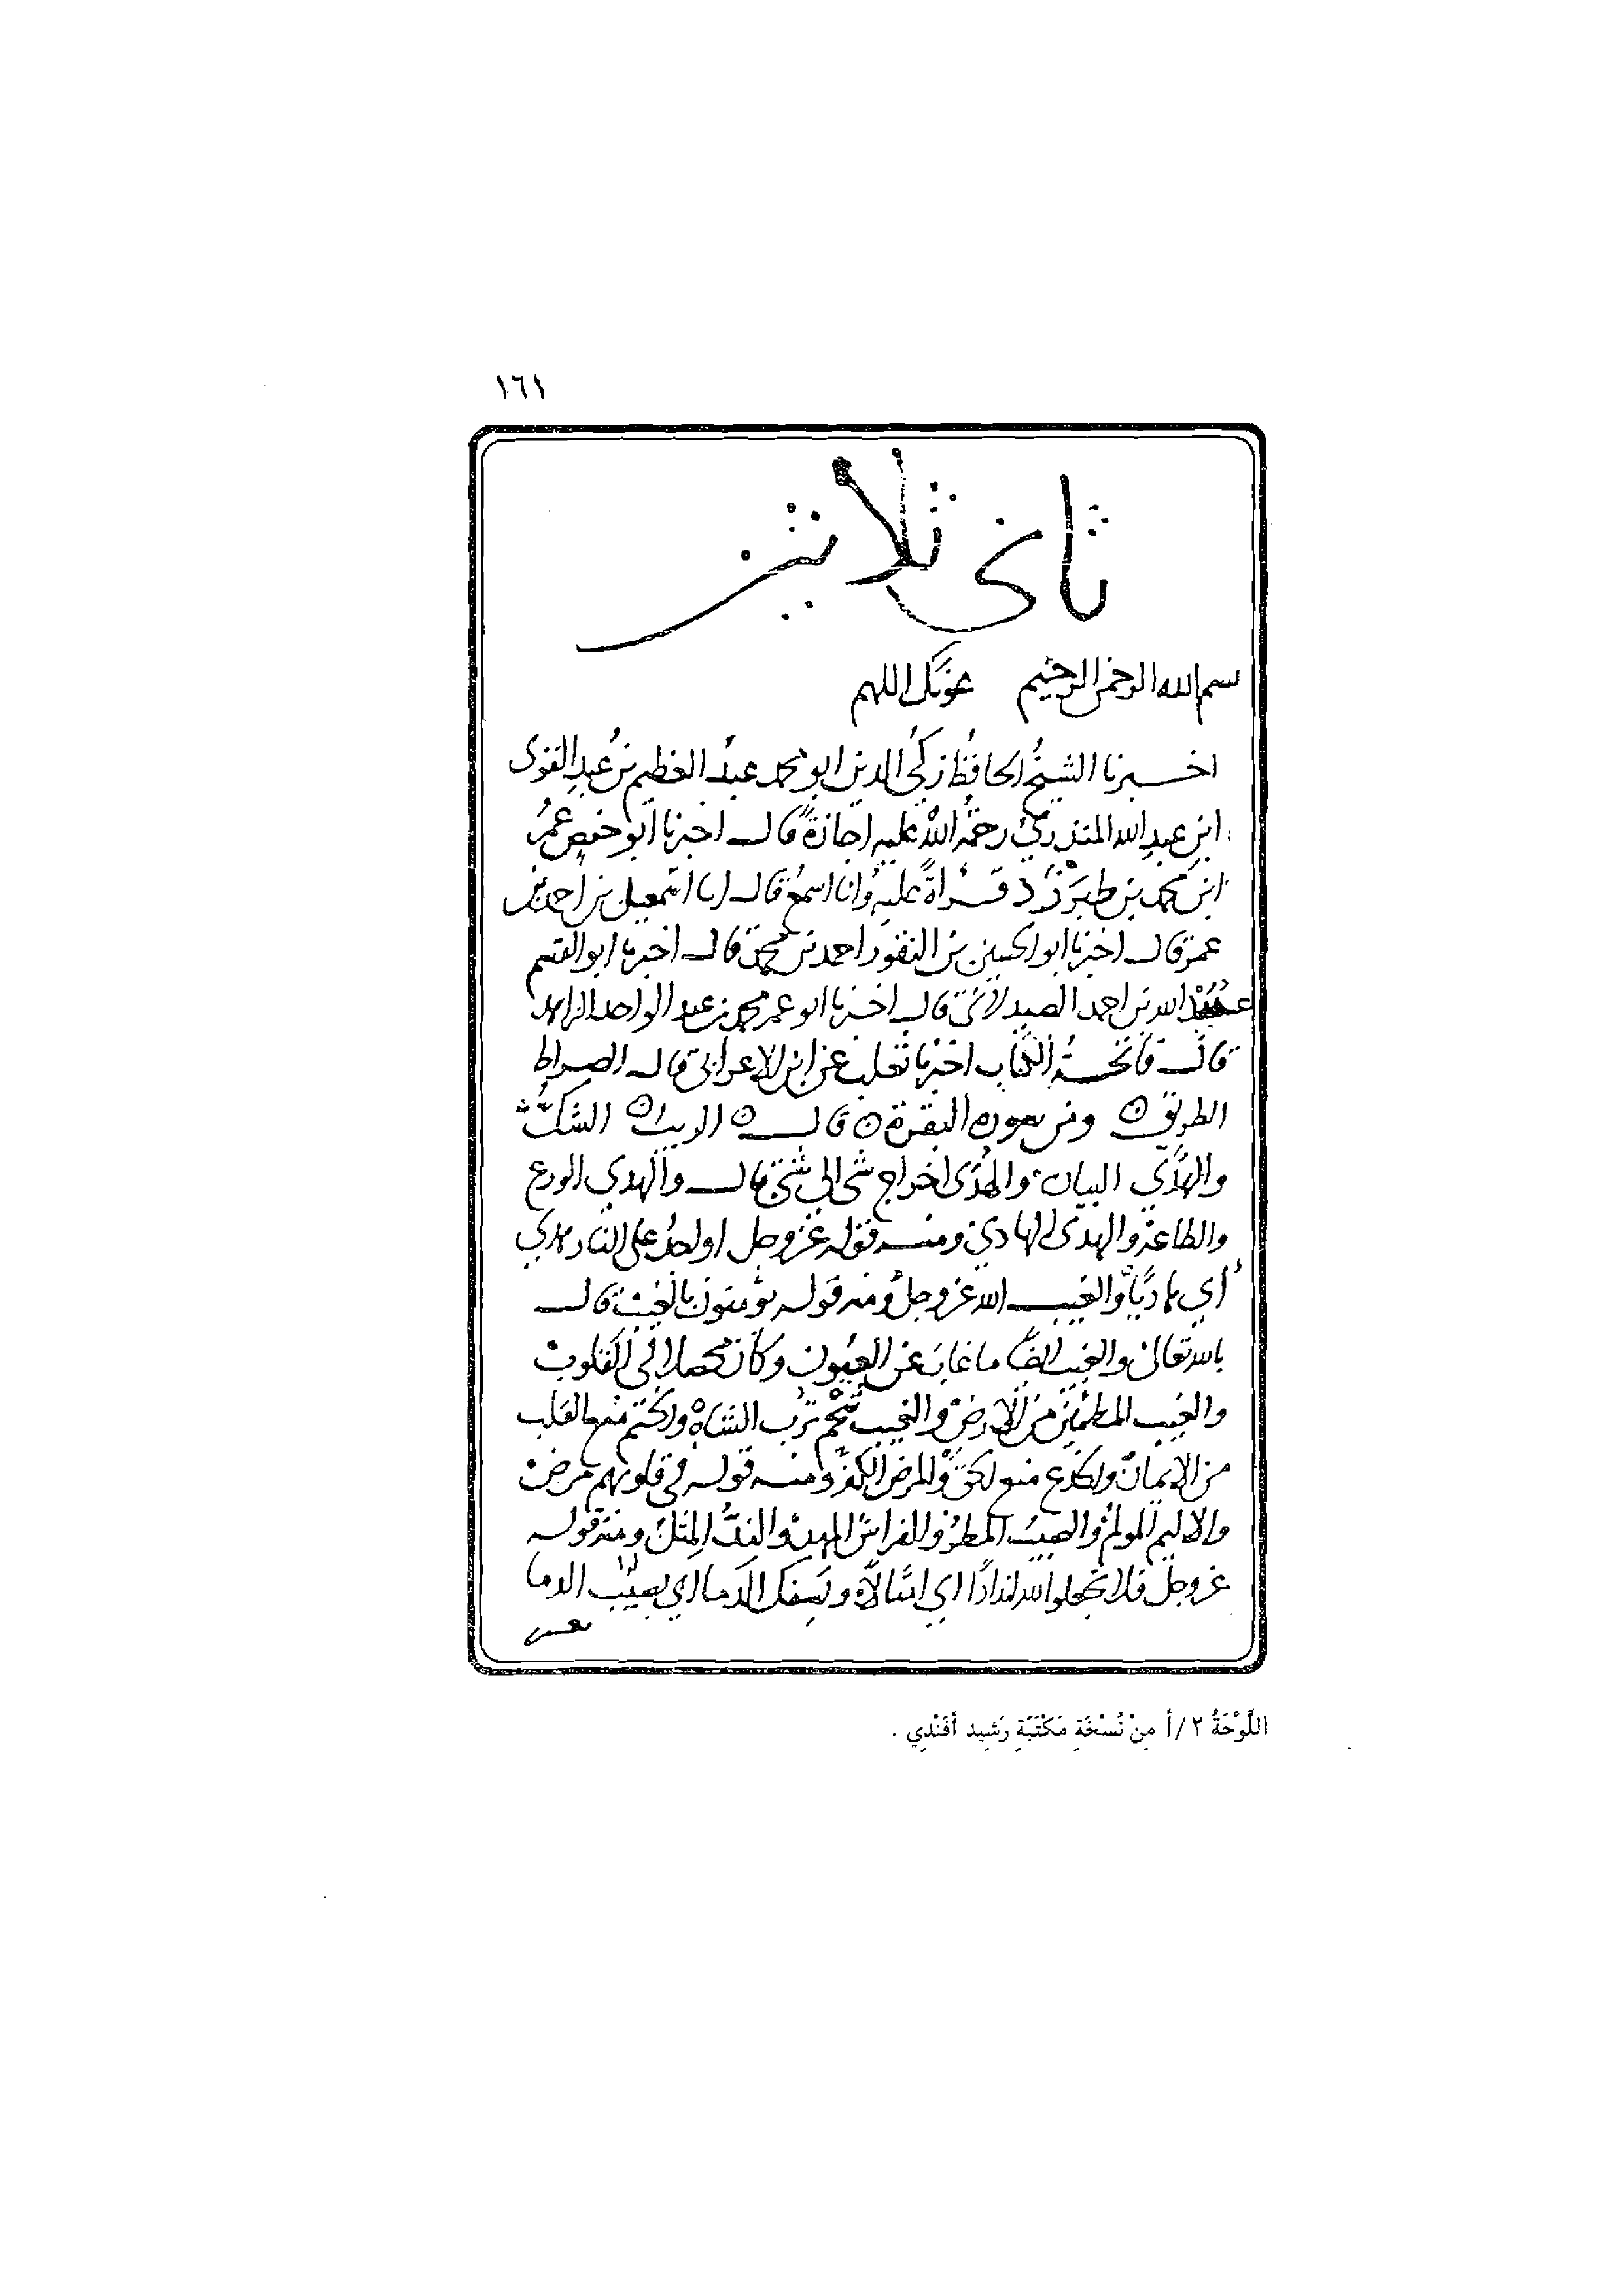 ١٦١
ثانى ثلاثين
بسم الله الرحمن الرحيم عونك اللهم
اخبرنا الشيخُ الحافظُ زكىُّ الدين ابو محمد عبدُ العظيم بنُ عبدِ القوى
ابنِ عبدِ الله المنذرىُّ رحمةُ اللهِ عليه اجازةً قال اخبرنا ابو حفص عمرُ
ابن محمد بن طبرزد قراةً عليه وانا اسمعُ قال انا اسمعيل بن احمد بن
عمر قال اخبرنا ابو الحسين بن النقور احمد بن محمد قال اخبرنا ابو القسم
عبيد الله بن احمد الصيدلانى قال اخبرنا ابو عمر محمد بن عبد الواحد الزاهد
قال فاتحةُ الكتاب اخبرنا ثعلب عن ابن الاعرابى قال الصراط
الطريق ومن سورة البقرة قال الريب الشكُّ
والهدي البيان والهُدَى اخراج شى الى شى قال والهدي الورع
والطاعة والهدى الهادي ومنه قوله عز وجل او اجد على النار هدي
أي هاديًا والغيب الله عز وجل ومنه قوله يؤمنون بالغيب قال
بالله تعالى والغيب ايضًا ما غابَ عن العيون وكان محصلا فى القلوب
والغيب المطمئن من الارض والغيب شحم ثَرْب الشاة والختم منع القلب
من الايمان والخدع منع الحق والمرض الكفر ومنه قوله فى قلوبهم مرض
والاليم المولم والصيب المطر والفراش المهد والندُّ المِثل ومنه قوله
عز وجل فلا تجعلوا لله اندادًا اي امثالًا ويسفك الدما اي يصبب الدما
اللَّوْحَةُ ٢/أ مِنْ نُسْخَةِ مَكْتَبَةِ رَشِيد أفَنْدِي .